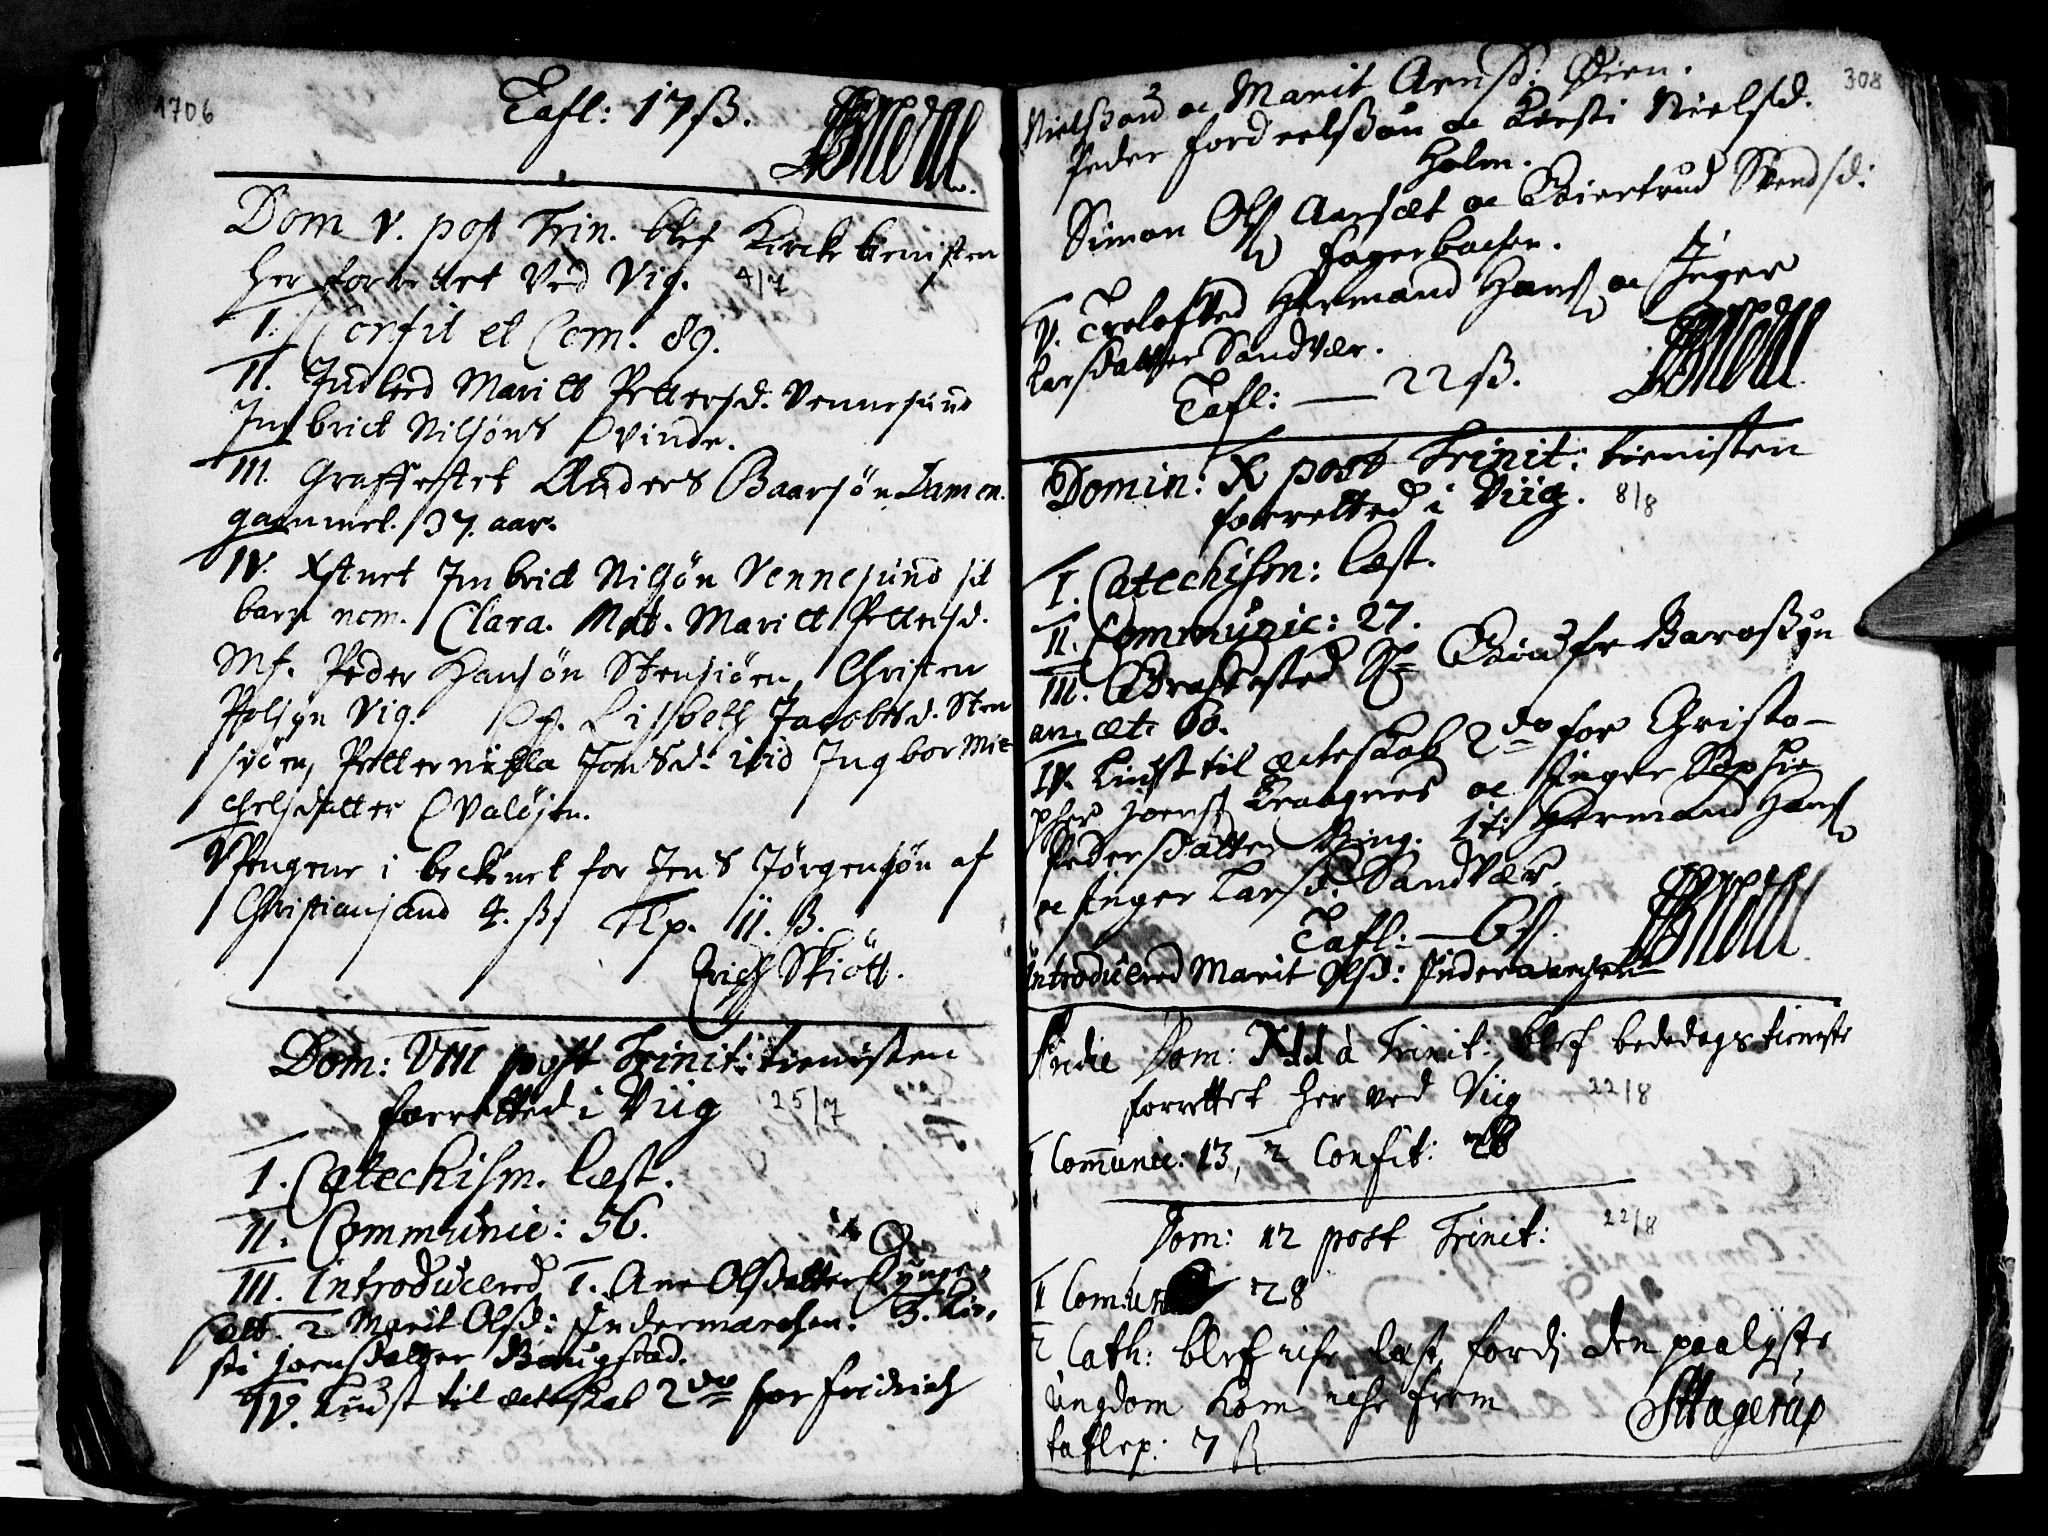 1706
Tafl: 17 ß.
Dom V. post Trin. blef Kircke tienisten
her forrettet Ved Vig. 4/7
I. Confit et Com. 89.
II. Indleed Maritt Pettersd. Vennesund
Imbrict Nilsöns Qvinde.
III. Graffestet Anders Baarsön
gammel. 37. aar.
IV. Xstnet Imbrict Nilsön Vennesund sit
barn nom. Clara. Mat. Maritt Pettersd.
Mf. Peder Hansön Stensiöen, Christen
Polsön Vig. Qf. Lisbeth Jacobsd. Sten
siöen, Petternilla Jonsd: ibid Ingbor Mic
chelsdatter Qvalöjen.
V Pengene i beckenet for Jens Jörgensön af
Christiansand 4. ß. Tlp. 11. ß.
Erich Skiött.
Dom: VIII post Trinit: tienisten
forretted i Viig 25/7
I. Catechism. læst.
II. Communic: 56.
III. Introducered 1. Ane Olsdatter Dynge-
sætt. 2 Marit Olsd: Indermarchen. 3. Kir-
sti Joensdatter Baugstad.
IV. Liust til ecteskab 2do for Fridrich
308
Nielssøn oc Marit Arnsd: Øien.
Peder Fordeelssøn oc Kirsti Nielsd.
Holm.
Simon Ols Aarsæt oc Giertrud Svendsd:
Fagerbachen.
V. Troloffved Hermand Hans oc Inger
Larsdatter Sandvær.
Tafl: — 22 ß.
Domin: X post Trinit: tienisten
forretted i Viig. 8/8
I. Catechism: læst.
II. Communic: 27.
III. Grafested Sr Gudfr Baroszyn
an. æt. 60.
IV. Liust til ecteskab 2do for Christo-
pher Joens Kraagnes oc Inger Sophie
Pedersdatter Bing. It: Hermand Hans
oc Inger Larsd: Sandvær.
Tafl: — 6 ß.
Introducered Marit Olsd: Indermarchen
Fridie Dom: XIdâ Trinit: blef bededags tieniste
forrettet her ved Viig 22/8
1 Communic: 13, 2 Confit:
Dom: 12 post Trinit: 22/8
1 Comun 28
2 Cath: blef iche læst, fordj den paalyste
ungdom kom iche frem
taflep: 7 ß SHagerup